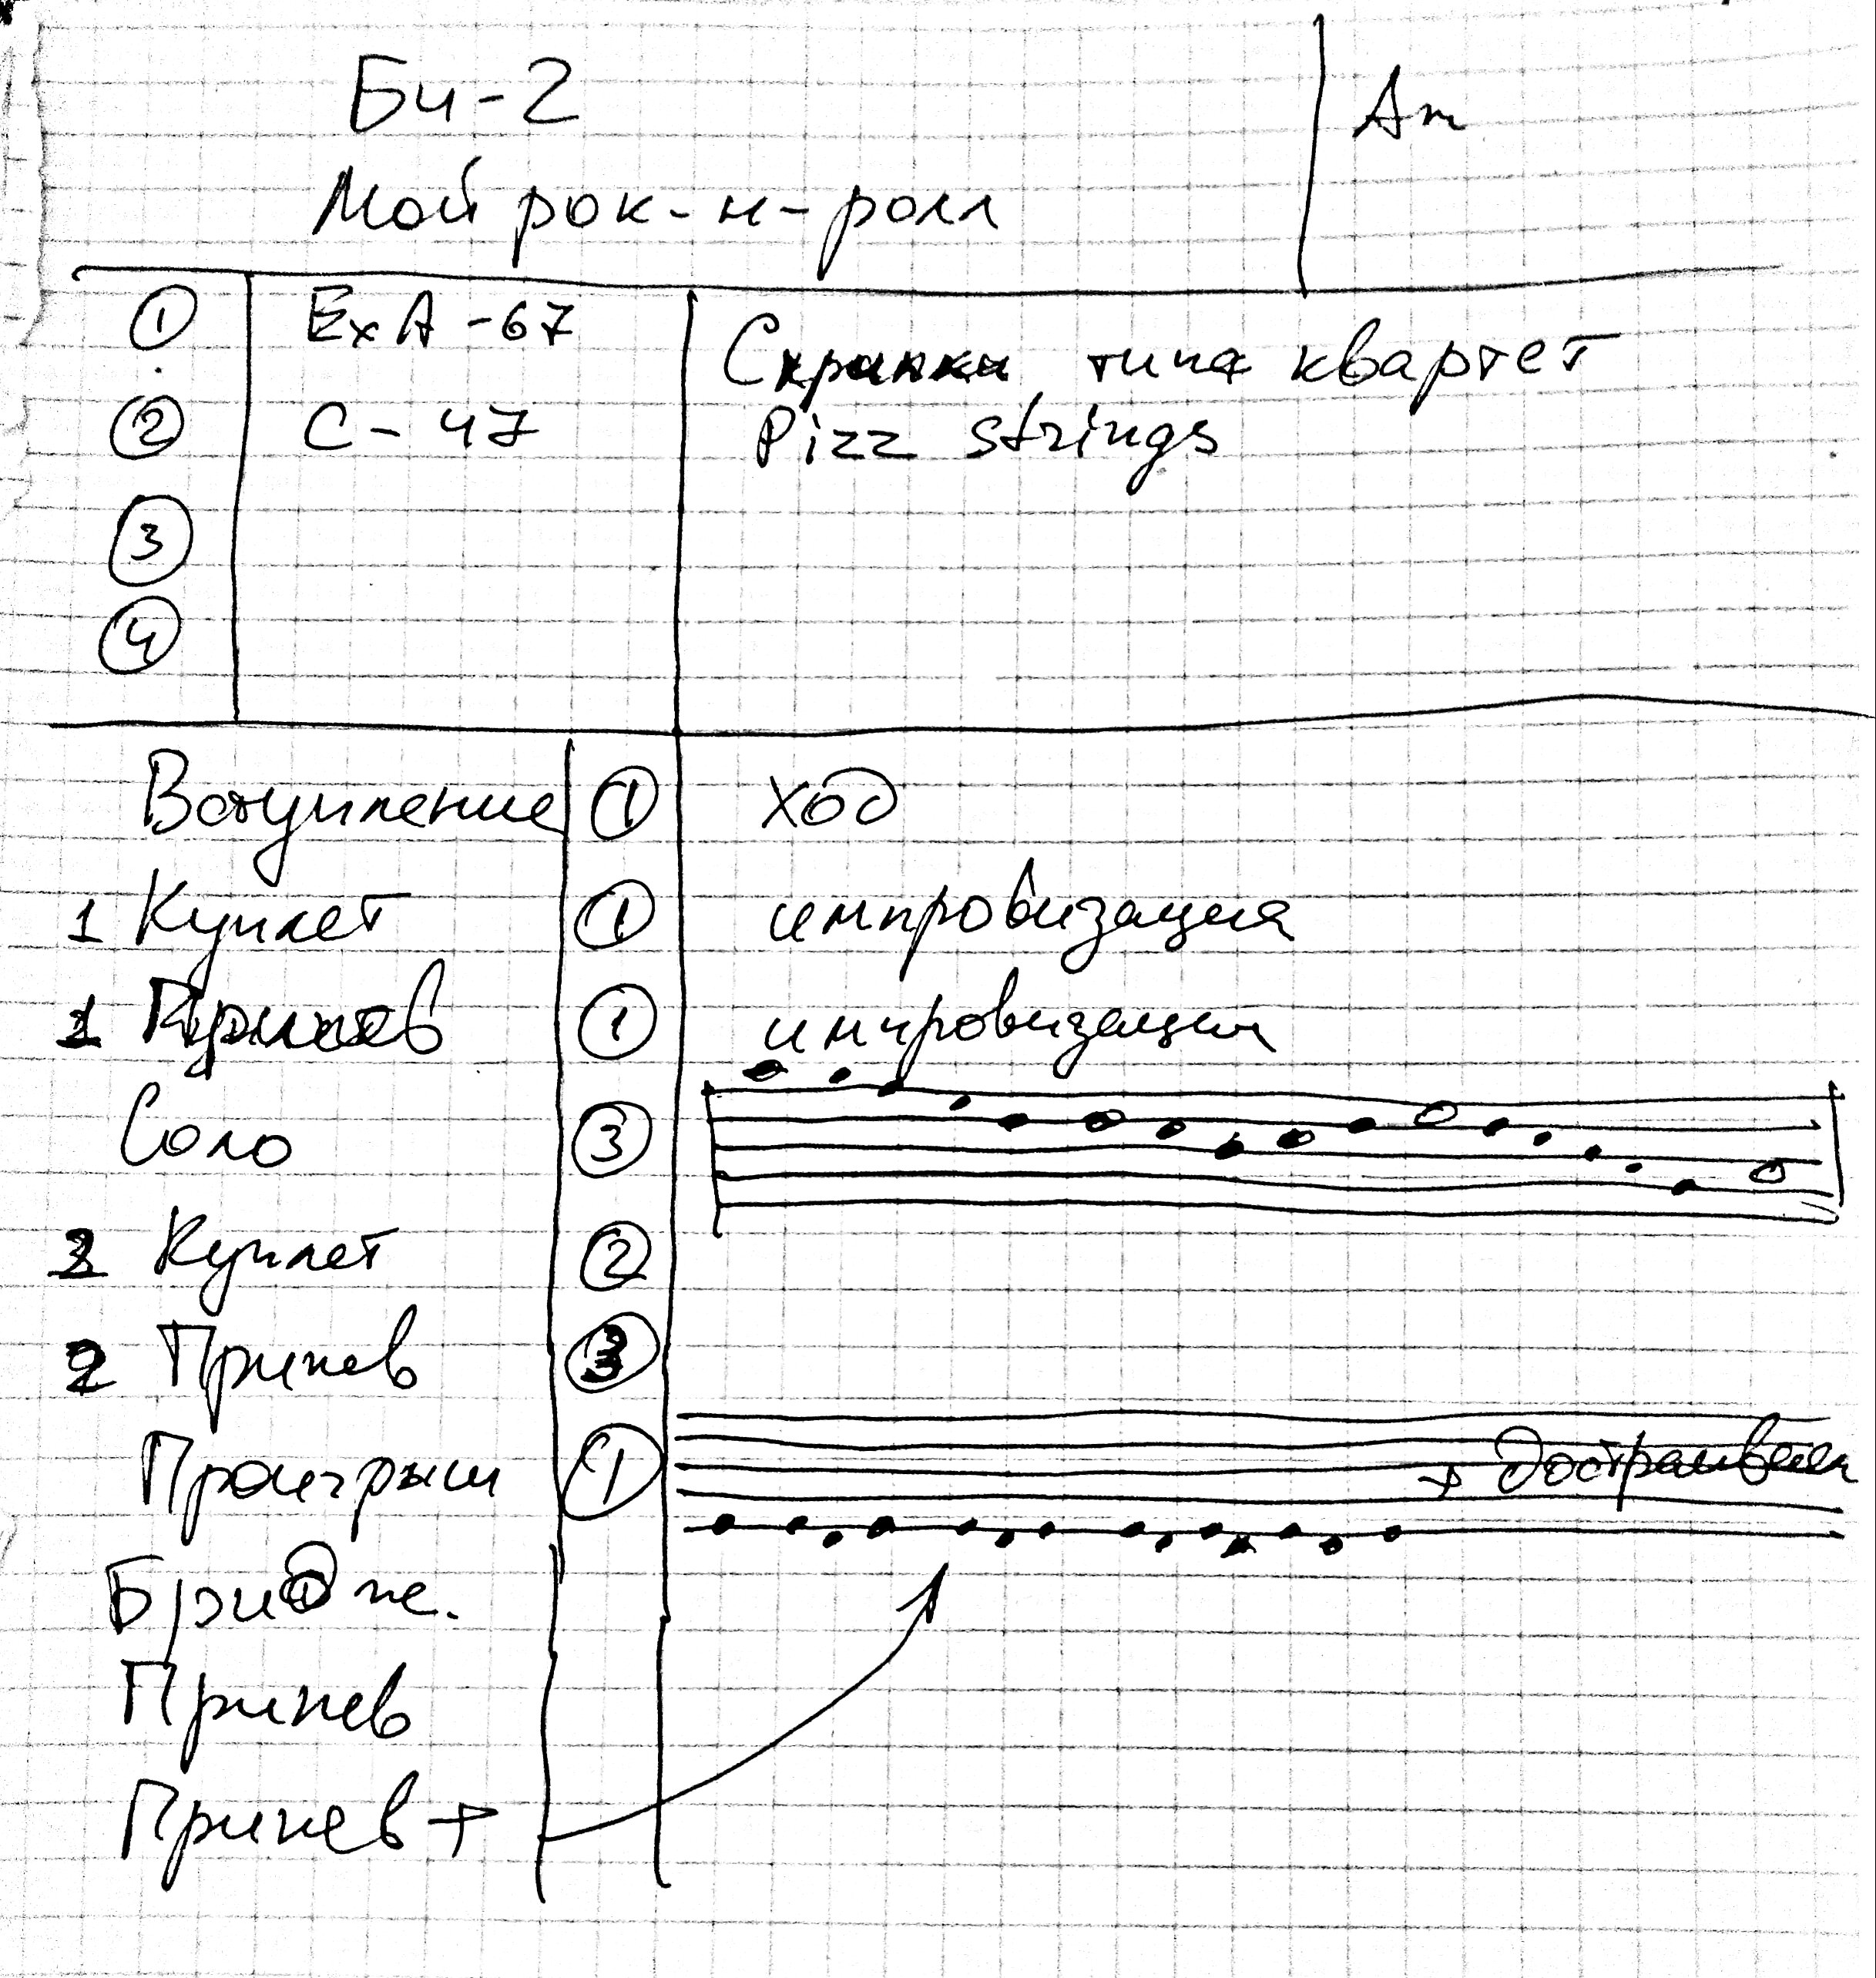 Би-2
Am
Мой рок-н-ролл
1 ExA-67 Скрипки типа квартет
2 C-47 Pizz strings
3
4
Вступление 1 ход
1 Куплет 1 импровизация
1 Припев 1 импровизация
Соло 3
2 Куплет 2
2 Припев 3
Проигрыш 1 + достраиваем
Бридж.
Припев
Припев +